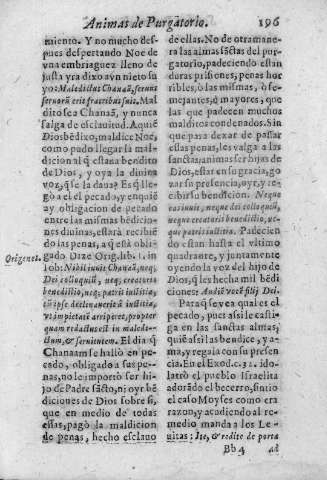 Animas de Purgatorio. 196
miento. Y no mucho des-
pues despertando Noe de
vna embriaguez lleno de
justa yra dixo a vn nieto su
yo: Maledictus Chanaã, seruus
seruorũ erit fratribus suis. Mal
dito sea Chanaã, y nunca
salga de esclauitud. A quiẽ
Dios bẽdixo, maldice Noe,
como pudo llegar la maldi-
cion al q̃ estaua bendito
de Dios, y oya la diuina
voz, q̃ se la daua? Es q̃ lle-
gò a el el pecado, y en quiẽ
ay obligacion de pecado
entre las mismas bẽdicio-
nes diuinas, estarà recibiẽ
do las penas, a q̃ està obli-
gado. Dize Orig. lib. 1. in
Origenes.
Iob: Nihil iuuit Chanaã, neq;
Dei colloquiũ, neq; creatoris
benedictio, neq; patris iustitia,
cũ ipse declinaret à iustitia,
vt impietatẽ arriperet, propter
quam redactus est in maledic-
tum, & seruitutem. El dia q̃
Chanaam se hallò en pe-
cado, obligado a sus pe-
nas, no le importò ser hi-
jo de Padre sãcto, ni oyr bẽ
diciones de Dios sobre si,
que en medio de todas
essas, pagò la maldicion
de penas, hecho esclauo
de ellas. No de otra mane-
ra las almas sãctas del pur-
gatorio, padeciendo estan
duras prisiones, penas hor
ribles, ò las mismas, ò se-
mejantes, ò mayores, que
las que padecen muchos
malditos condenados. Sin
que para dexar de passar
estas penas, les valga a las
sanctas animas ser hijas de
Dios, estar en su gracia, go
zar su presencia, oyr, y re-
cibir su bendicion. Neque
vos iuuit, neque dei colloquiũ,
neque creatoris benedictio, ne-
que patris iustitia. Padecien
do estan hasta el vltimo
quadrante, y juntamente
oyendo la voz del hijo de
Dios, q̃ les hecha mil bẽdi
ciones: Audiẽ vocẽ filij Dei.
Para q̃ se vea qual es el
pecado, pues assi le casti-
ga en las sanctas almas,
quiẽ assi las bendice, y a-
ma, y regala con su presen
cia. En el Exod. c. 32. ido-
latrò el pueblo Israelita
adorãdo el becerro, sintio
el caso Moyses como era
razon, y acudiendo al re-
medio manda a los Le-
uitas: Ite, & redite de porta
Bb 4 ad